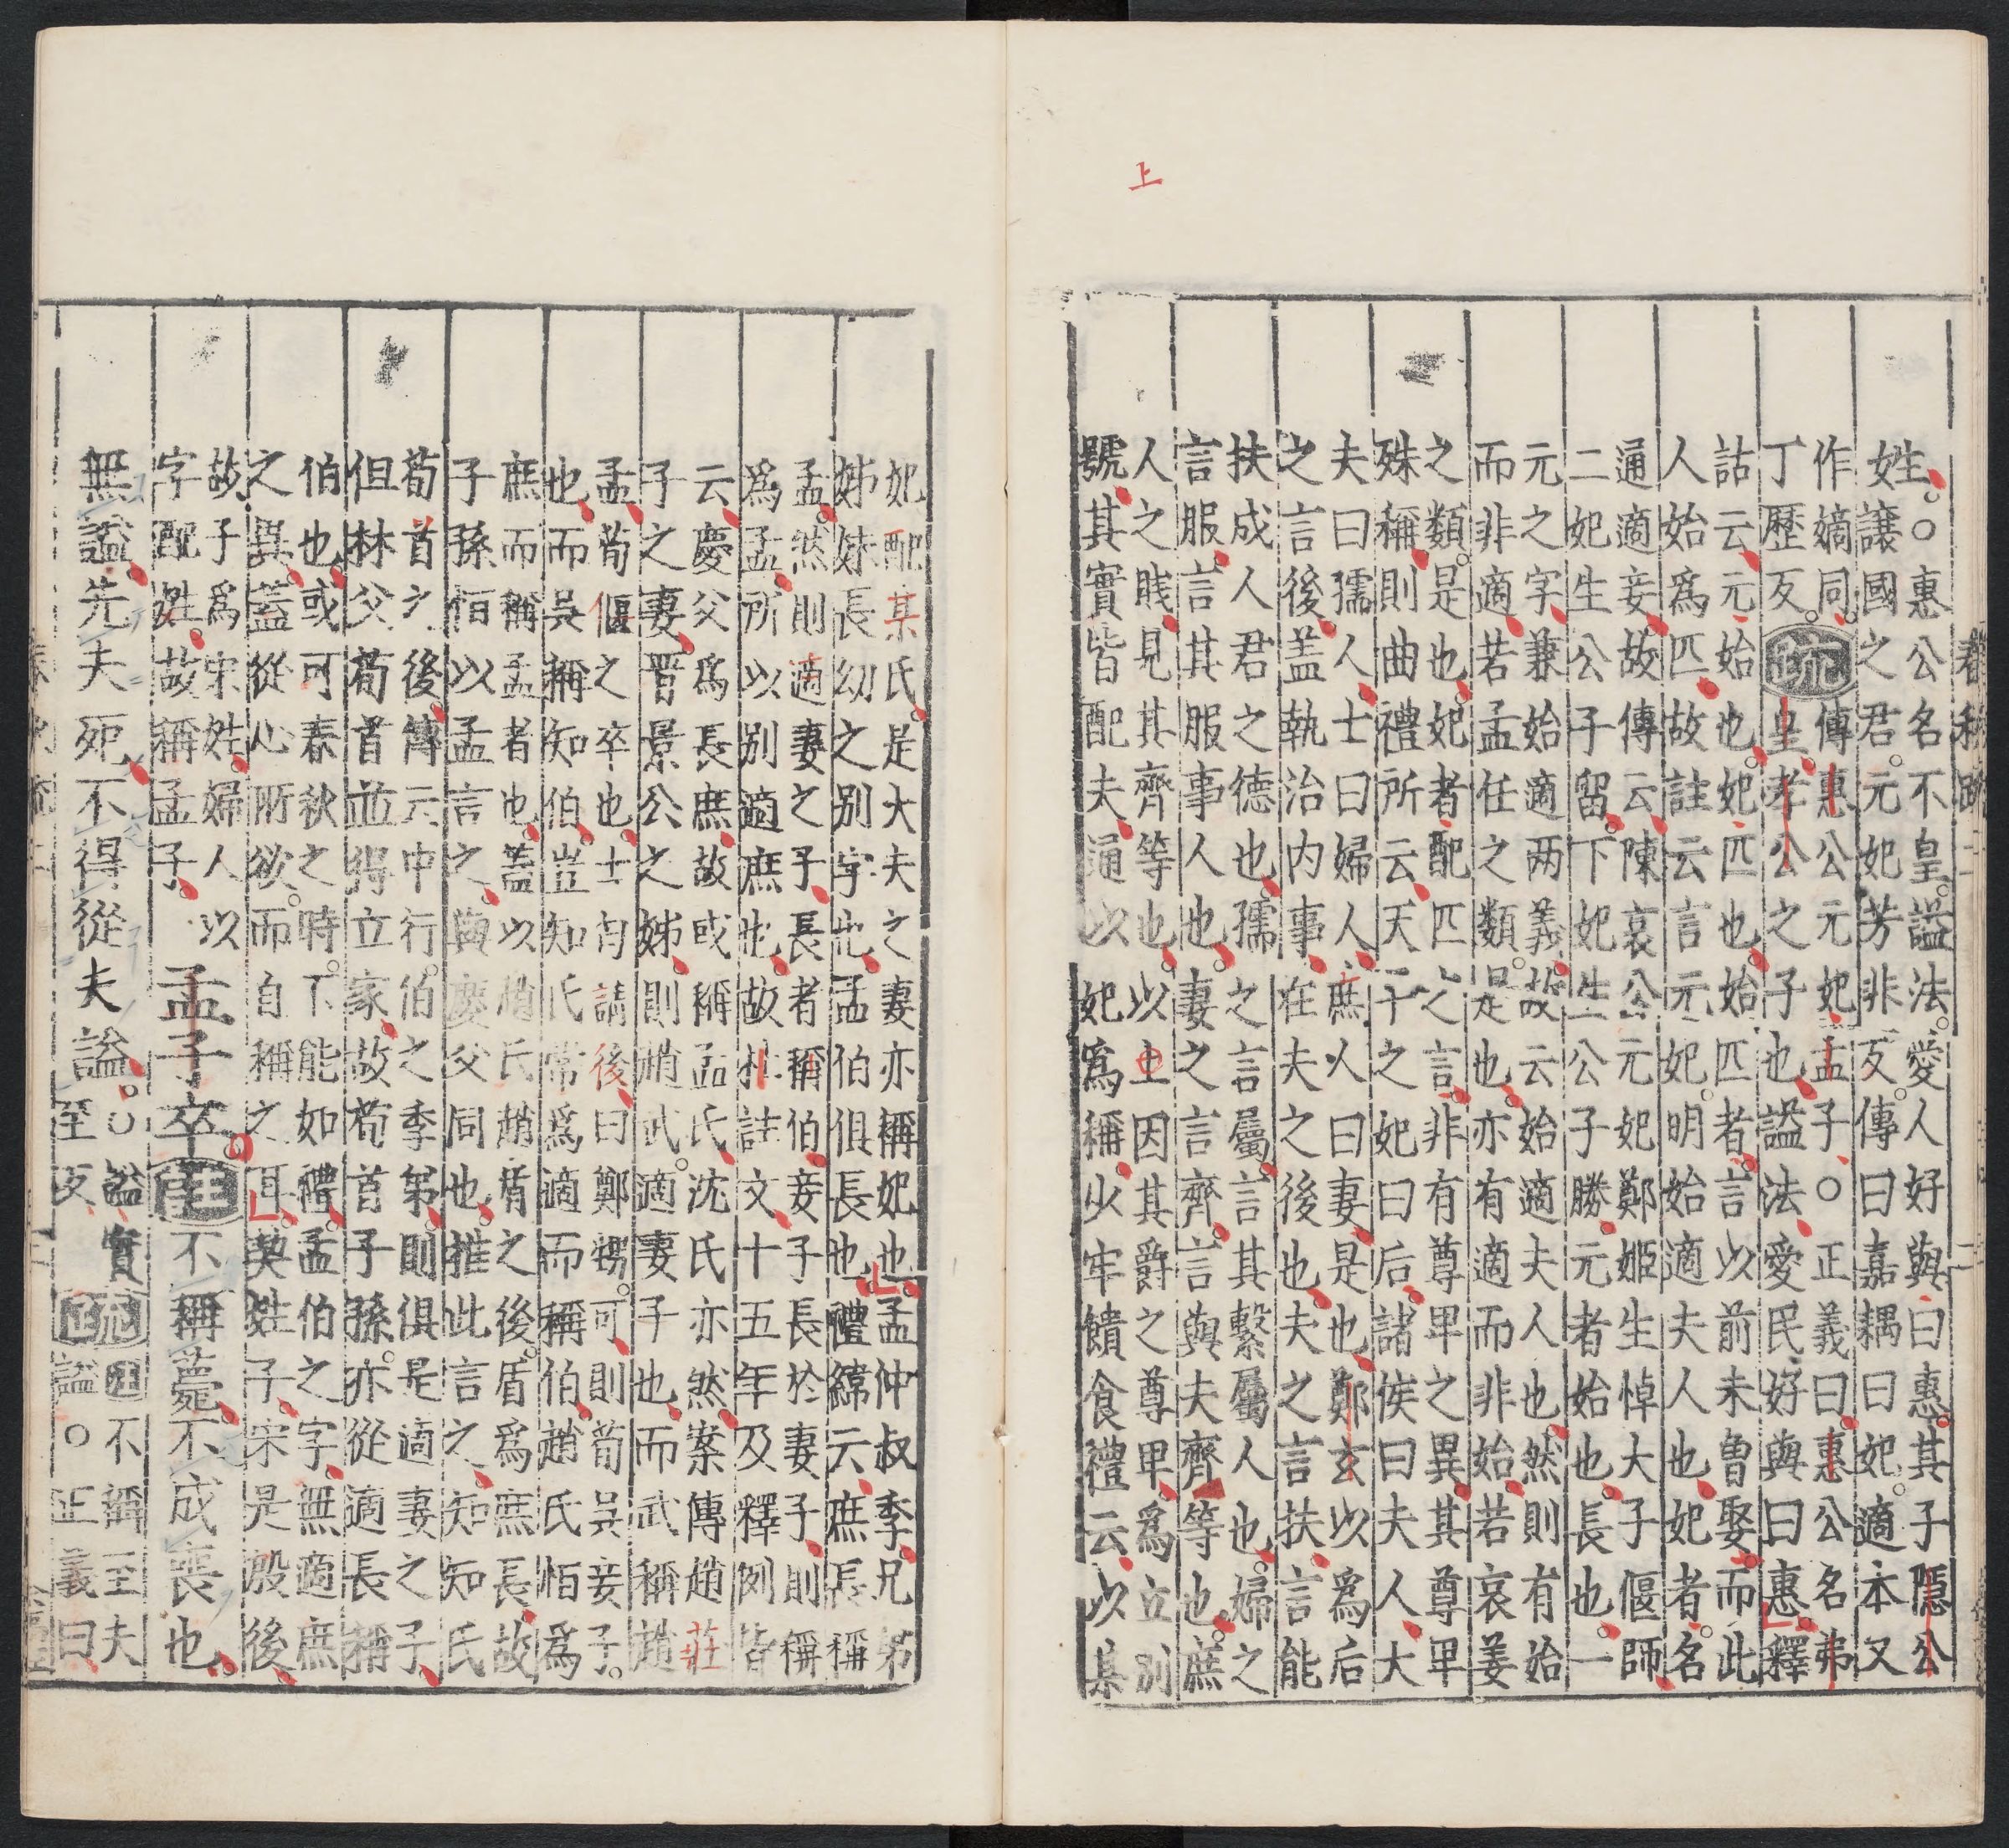 春秋疏二　二
姓。○惠公名不皇謚法愛人好與曰惠其子隱公
讓國之君元妃芳非反傳曰嘉耦曰妃適本又
作嫡同
丁歷反
疏
傳惠公元妃孟子○正義曰惠公名弗
皇孝公之子也謚法愛民好與曰惠釋
詁云元始也妃匹也始匹者言以前未曾娶而此
人始爲匹故註云言元妃明始適夫人也妃者名
通適妾故傳云陳哀公元妃鄭姬生悼大子偃師
二妃生公子留下妃生公子勝元者始也長也一
元之字兼始適两義故云始適夫人也然則有始
而非適若孟任之類是也亦有適而非始若哀姜
之類是也妃者配匹之言非有尊卑之異其尊卑
殊稱則曲禮所云天子之妃曰后諸侯曰夫人大
夫曰孺人士曰婦人庶人曰妻是也鄭玄以爲后
之言後盖執治内事在夫之後也夫之言扶言能
扶成人君之德也孺之言屬言其繫屬人也婦之
言服言其服事人也妻之言齊言與夫齊等也庶
人之賤見其齊等也以上因其爵之尊卑爲立別
號其實皆配夫通以妃爲稱少牢饋食禮云以某
上
妃配某氏是大夫之妻亦稱妃也孟仲叔季兄弟
姊妹長幼之別字也孟伯俱長也禮緯云庶長稱
孟然則適妻之子長者稱伯妾子長於妻子則稱
爲孟所以別適庶也故杜註文十五年及釋例皆
云慶父爲長庶故或稱孟氏沈氏亦然案傳趙莊
子之妻晋景公之姊則趙武適妻子也而武稱趙
孟荀偃之卒也士匄請後曰鄭甥可則荀吳妾子
也而吳稱知伯豈知氏常爲適而稱伯趙氏恒爲
庶而稱孟者也蓋以趙氏趙盾之後盾爲庶長故
子孫恒以孟言之與慶父同也推此言之知知氏
荀首之後傳云中行伯之季弟則俱是適妻之子
但林父荀首並得立家故荀首子孫亦從適長稱
伯也或可春秋之時不能如禮孟伯之字無適庶
之異蓋從心所欲而自稱之耳契姓子宋是殷後
故子爲宋姓婦人以
字配姓故稱孟子
孟子卒註不稱薨不成喪也
無謚先夫死不得從夫謚。○謚實
至反
疏註不稱至夫
謚。○正義曰